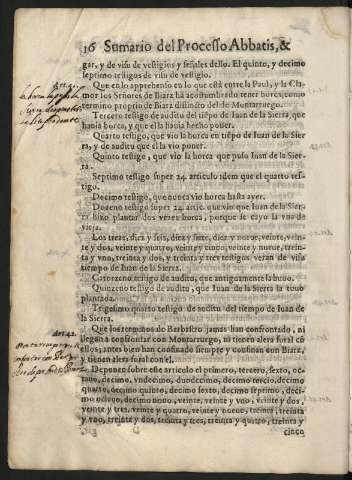 16 Sumario del Processo Abbatis, &
gar, y de visu de vestigios y señales dello. El quinto, y decimo
septimo testigos de visu de vestigio.
Que en lo apprehenso en lo que està entre la Paul, y la Cla-
mor los Señores de Biarz hã acostumbrado tener horca, como
termino proprio de Biarz distincto del de Montarruego.
Tercero testigo de auditu del tiẽpo de Iuan de la Sierra, que
hauia horca, y que el la hauia hecho poner.
Quarto testigo, que vio la horca en tiẽpo de Iuan de la Sier-
ra, y de auditu que el la vio poner.
Quinto testigo, que vio la horca que puso Iuan de la Sier-
ra.
Septimo testigo super 24. articulo idem que el quarto tes-
tigo.
Decimo testigo, que nunca vio horca hasta ayer.
Dozeno testigo super 24. artic. que vio que Iuan de la Sier-
ra hizo plantar dos vezes horca, porque se cayo la vna de
vieja.
Los treze, diez y seis, diez y siete, diez y nueue, veinte, vein-
te y dos, veinte y quatro, veinte y cinco, veinte y nueue, trein-
ta y vno, treinta y dos, y treinta y tres testigos veran de visu
tiempo de Iuan de la Sierra.
Catorzeno testigo de auditu, que antiguamente la huuo.
Quinzeno testigo de auditu, que Iuan de la Sierra la tuuo
plantada.
Trigesimo quarto testigo de auditu del tiempo de Iuan de
la Sierra.
Que los terminos de Barbastro jamas han confrontado, ni
llegan a confrontar con Montarruego, ni tienen alera foral cõ
ellos, antes bien han confinado siempre y confinan con Biarz,
y tienen alera foral con el.
Deponen sobre este articulo el primero, tercero, sexto, oc-
tauo, decimo, vndecimo, duodecimo, decimo tercio, decimo
quarto, decimo quinto, decimo sexto, decimo septimo, deci-
mo octauo, decimo nono, veinte, veinte y vno, veinte y dos,
veinte y tres, veinte y quatro, veinte y nueue, treinta, treinta
y vno, treinta y dos, treinta y tres, treinta y quatro, treinta y
cinco